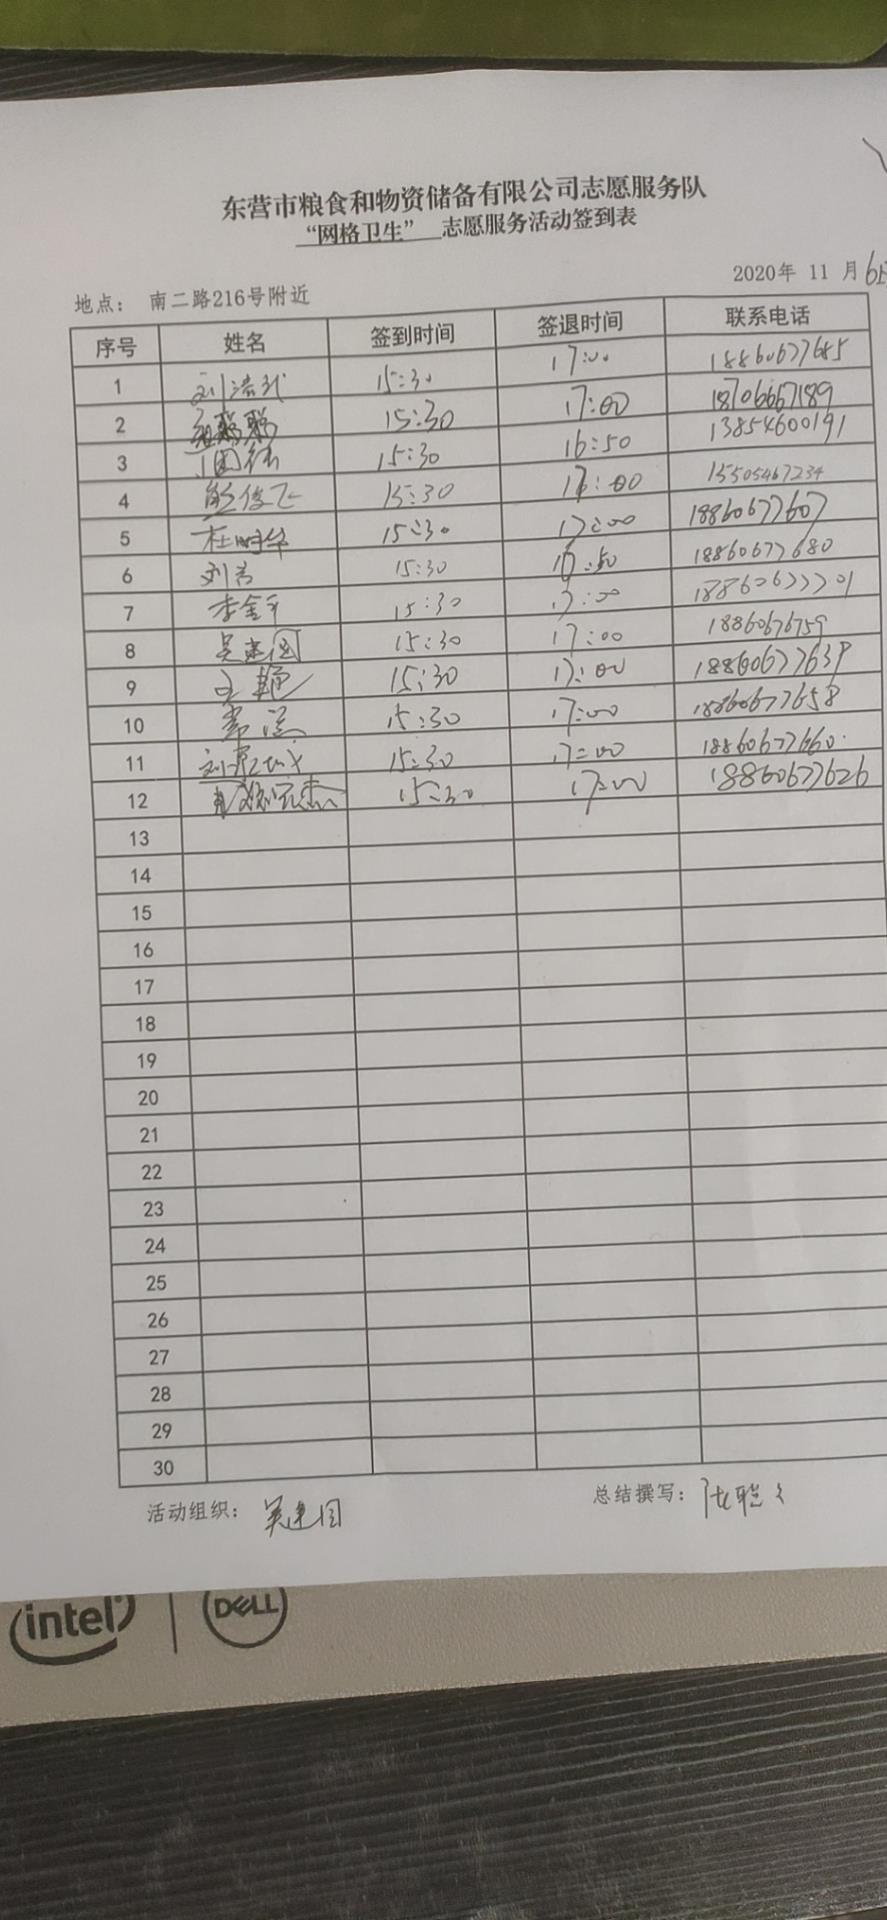 东营市粮食和物资储备有限公司志愿服务队
“网格卫生” 志愿服务活动签到表
地点： 南二路216号附近 2020年 11 月 6日
序号 姓名 签到时间 签退时间 联系电话
1 15:30 17:00 18860677685
2 15:30 17:00 18706667189
3 15:30 16:50 13854600191
4 15:30 17:00 15505467234
5 杜明华 15:30 17:00 18860677607
6 15:30 18860677680
7 李金平 15:30 17:00 18860677701
8 吴建国 15:30 17:00 18860676759
9 王艳 15:30 17:00 18860677639
10 15:30 17:00 18860677658
11 15:30 17:00 18860677660
12 15:30 17:00 18860677626
13
14
15
16
17
18
19
20
21
22
23
24
25
26
27
28
29
30
活动组织： 吴建国 总结撰写：
intel DELL